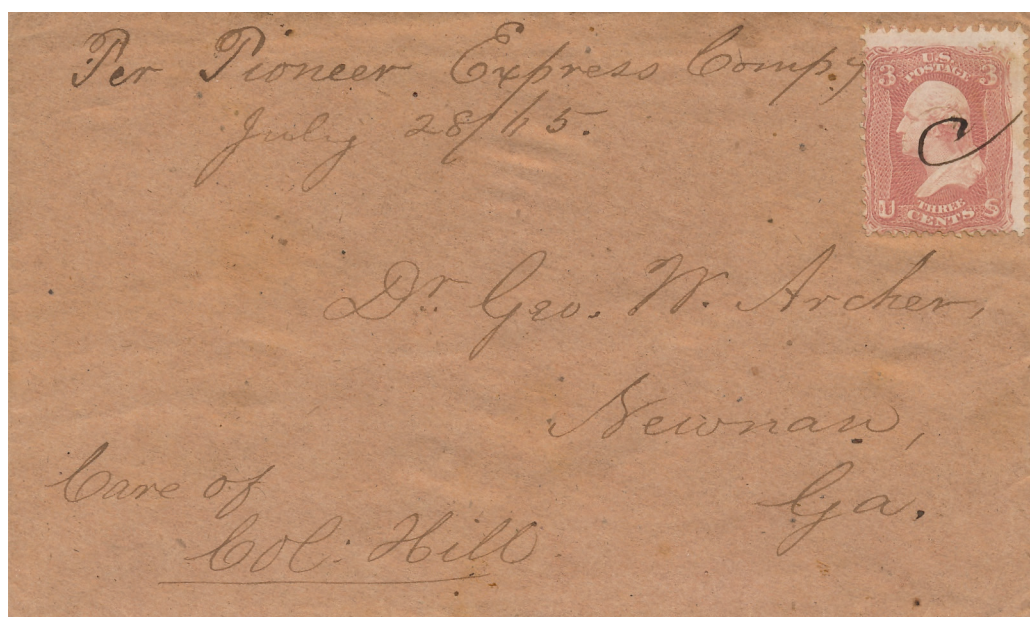 Per Pioneer Express Compy
July 28/65.
U.S.
POSTAGE
3 3
THREE
CENTS
U S
Dr. Geo. W. Archer,
Newnan,
Ga.
Care of
Col. Hill.